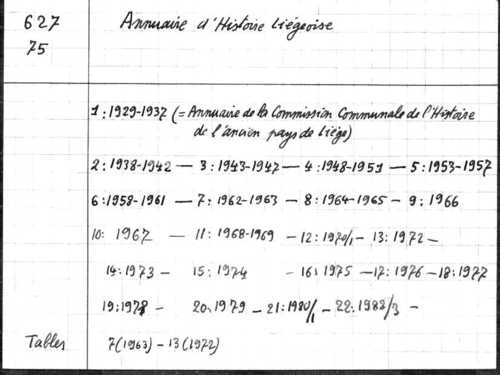 627 Annuaire d'Histoire Liégeoise
75
1 : 1929-1937 (= Annuaire de la Commission Communale de l'Histoire
de l'ancien pays de Liège)
2 : 1938-1942 — 3 : 1943-1947 — 4 : 1948-1951 — 5 : 1953-1957
6 : 1958-1961 — 7 : 1962-1963 — 8 : 1964-1965 — 9 : 1966
10 : 1967 — 11 : 1968-1969 — 12 : 1970/1 — 13 : 1972 —
14 : 1973 — 15 : 1974 — 16 : 1975 — 17 : 1976 — 18 : 1977
19 : 1978 — 20 : 1979 — 21 : 1980/1 — 22 : 1982/3 —
Tables 7 (1963) — 13 (1972)